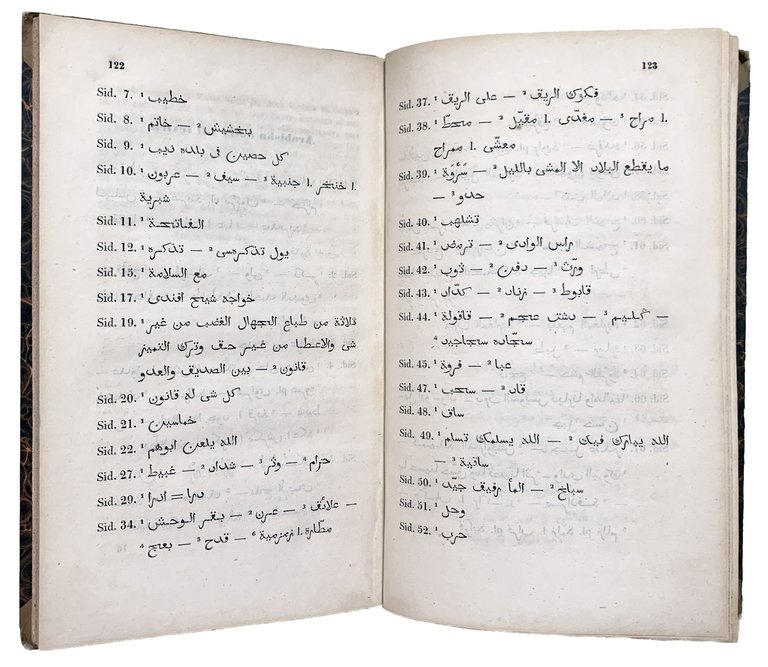 122
Sid. 7. ¹ خطيب
Sid. 8. ¹ بخشيش ² — خاتم
Sid. 9. ¹ كل حصين فى بلده ذيب
Sid. 10. ¹ خنجر .l جنبية ² — سيف ³ — عربون
شبرية
Sid. 11. ¹ الفاتحة
Sid. 12. ¹ يول تذكرهسى ² — تذكره
Sid. 15. ¹ مع السلامة
Sid. 17. ¹ خواجه شيخ افندى
Sid. 19. ¹ ثلاثة من طباع الجهال الغضب من غير
شى والاعطا من غير حق وترك التمييز
بين الصديق والعدو ² — قانون
Sid. 20. ¹ كل شى له قانون
Sid. 21. ¹ خماسين
Sid. 22. ¹ الله يلعن ابوهم
Sid. 27. ¹ غبيط ² — شداد ³ — وثر ⁴ — حزام
Sid. 29. ¹ درا = ادرا
Sid. 34. ¹ بقر الوحش ² — عرن ³ — علائق —
⁴ بعج ⁵ — قدح ⁶ — زمزمية .l مطارة
123
Sid. 37. ¹ على الريق ² — فكوك الريق
Sid. 38. ¹ محط ² — مقيل .l مغدى ³ — مراح .l
ممراح .l معشى
Sid. 39. ¹ سروة ² — ما يقطع البلاد الا المشى بالليل
³ — حدو
Sid. 40. ¹ تشلهب
Sid. 41. ¹ ترمض ² — راس الوادى
Sid. 42. ¹ ذوب ² — دفن ³ — ورث
Sid. 43. ¹ كداد ² — زناد ³ — قابوط
Sid. 44. ¹ قاقولة ² — دشتب عجم ³ — كليم —
⁴ سجاده سجاجيد
Sid. 45. ¹ فروة ² — عبا
Sid. 47. ¹ سحب ² — قاد
Sid. 48. ¹ ساف
Sid. 49. ¹ الله يسلمك تسلم ² — الله يبارك فيك
³ — سانية
Sid. 50. ¹ الما رفيق جيد ² — سباخ
Sid. 51. ¹ وحل
Sid. 52. ¹ حرب